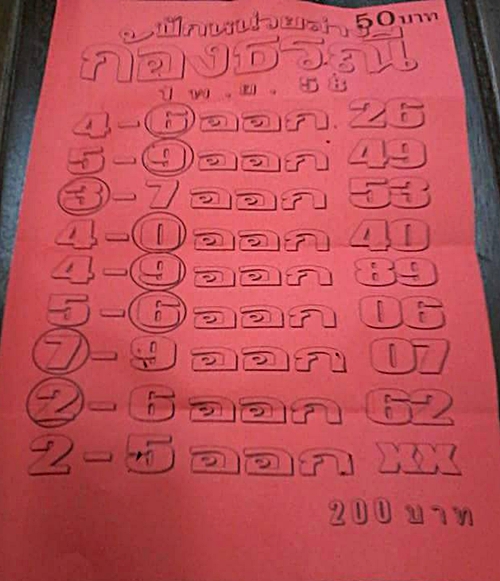 ฟักหน่วยล่าง 50 บาท
ก้องธรณี
1 พ.ย. 58
4-6 ออก 26
5-9 ออก 49
3-7 ออก 53
4-0 ออก 40
4-9 ออก 89
5-6 ออก 06
7-9 ออก 07
2-6 ออก 62
2-5 ออก XX
200 บาท